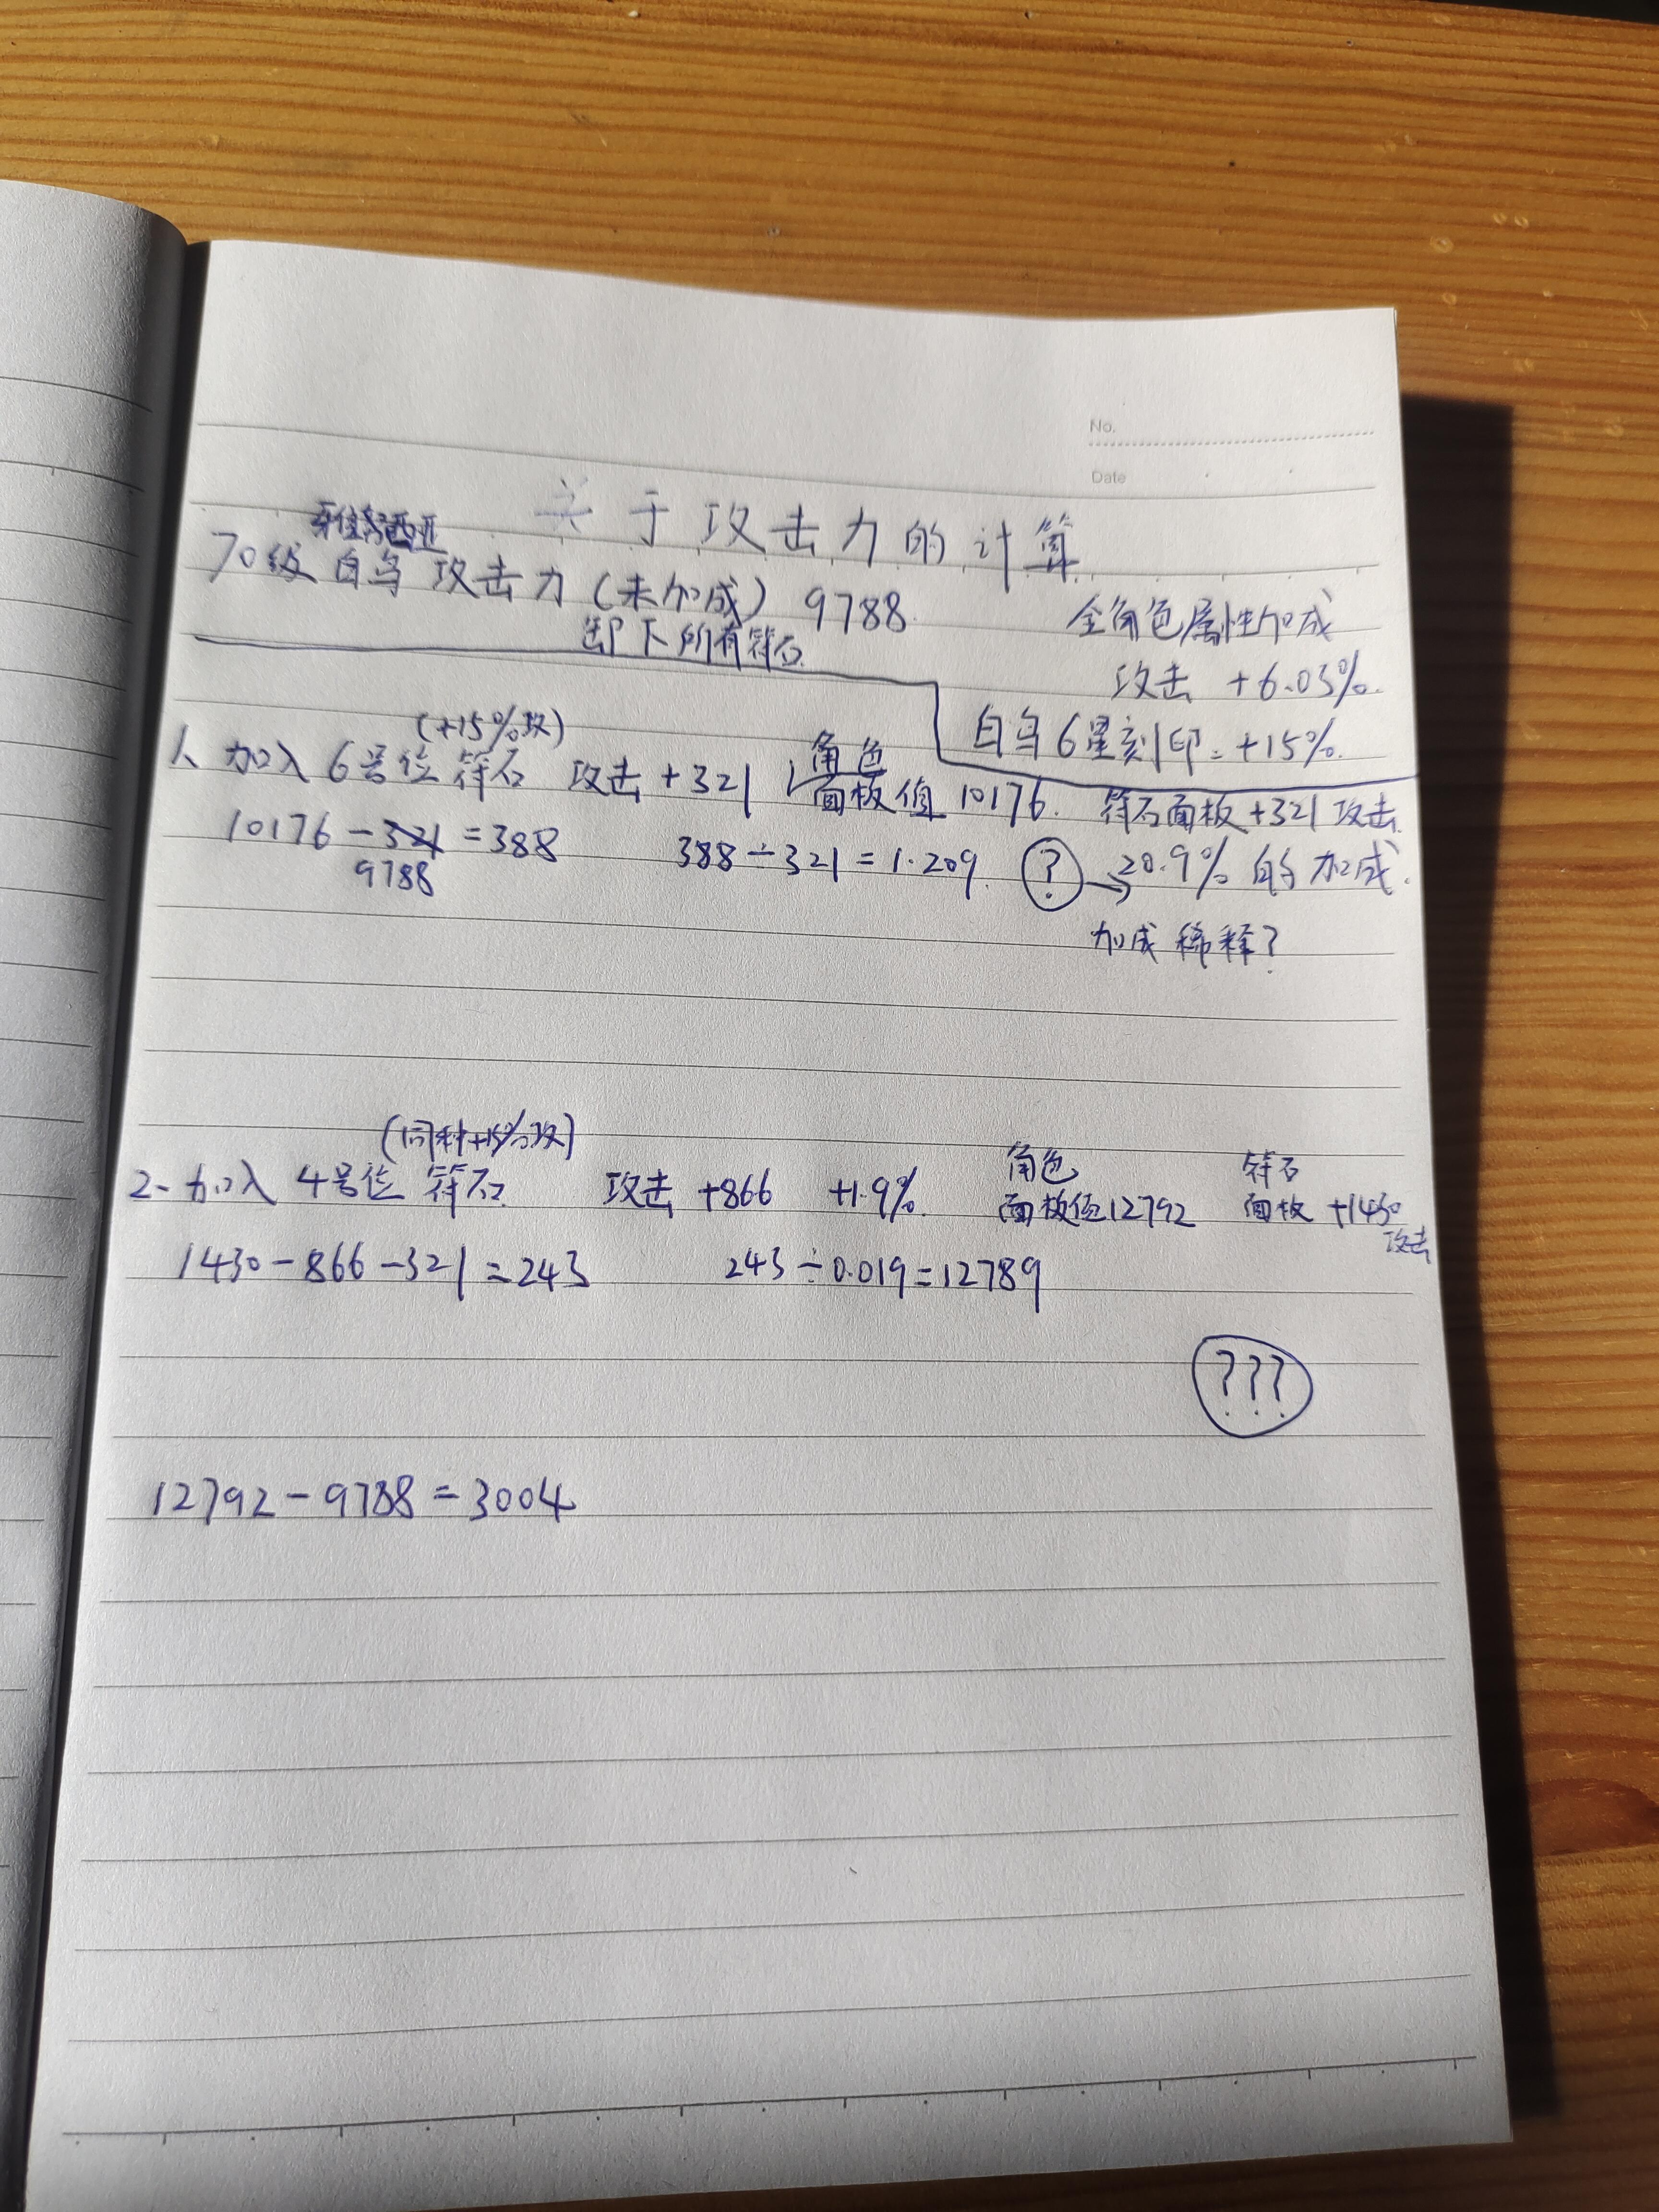 No.
Date
关于攻击力的计算
70级白乌攻击力(未加成) 9788
卸下所有符石
全角色属性加成
攻击 +6.03%
白乌6星刻印:+15%
(+15%攻)
1、加入6号位符石 攻击+321 角色面板值10176. 符石面板+321攻击.
10176-9788=388 388÷321=1.209. ?→20.9%的加成.
加成稀释?
(同种+15%攻)
2、加入4号位符石 攻击+866 +1.9% 角色面板值12792 符石面板+1430攻击
1430-866-321=243 243÷0.019=12789
???
12792-9788=3004